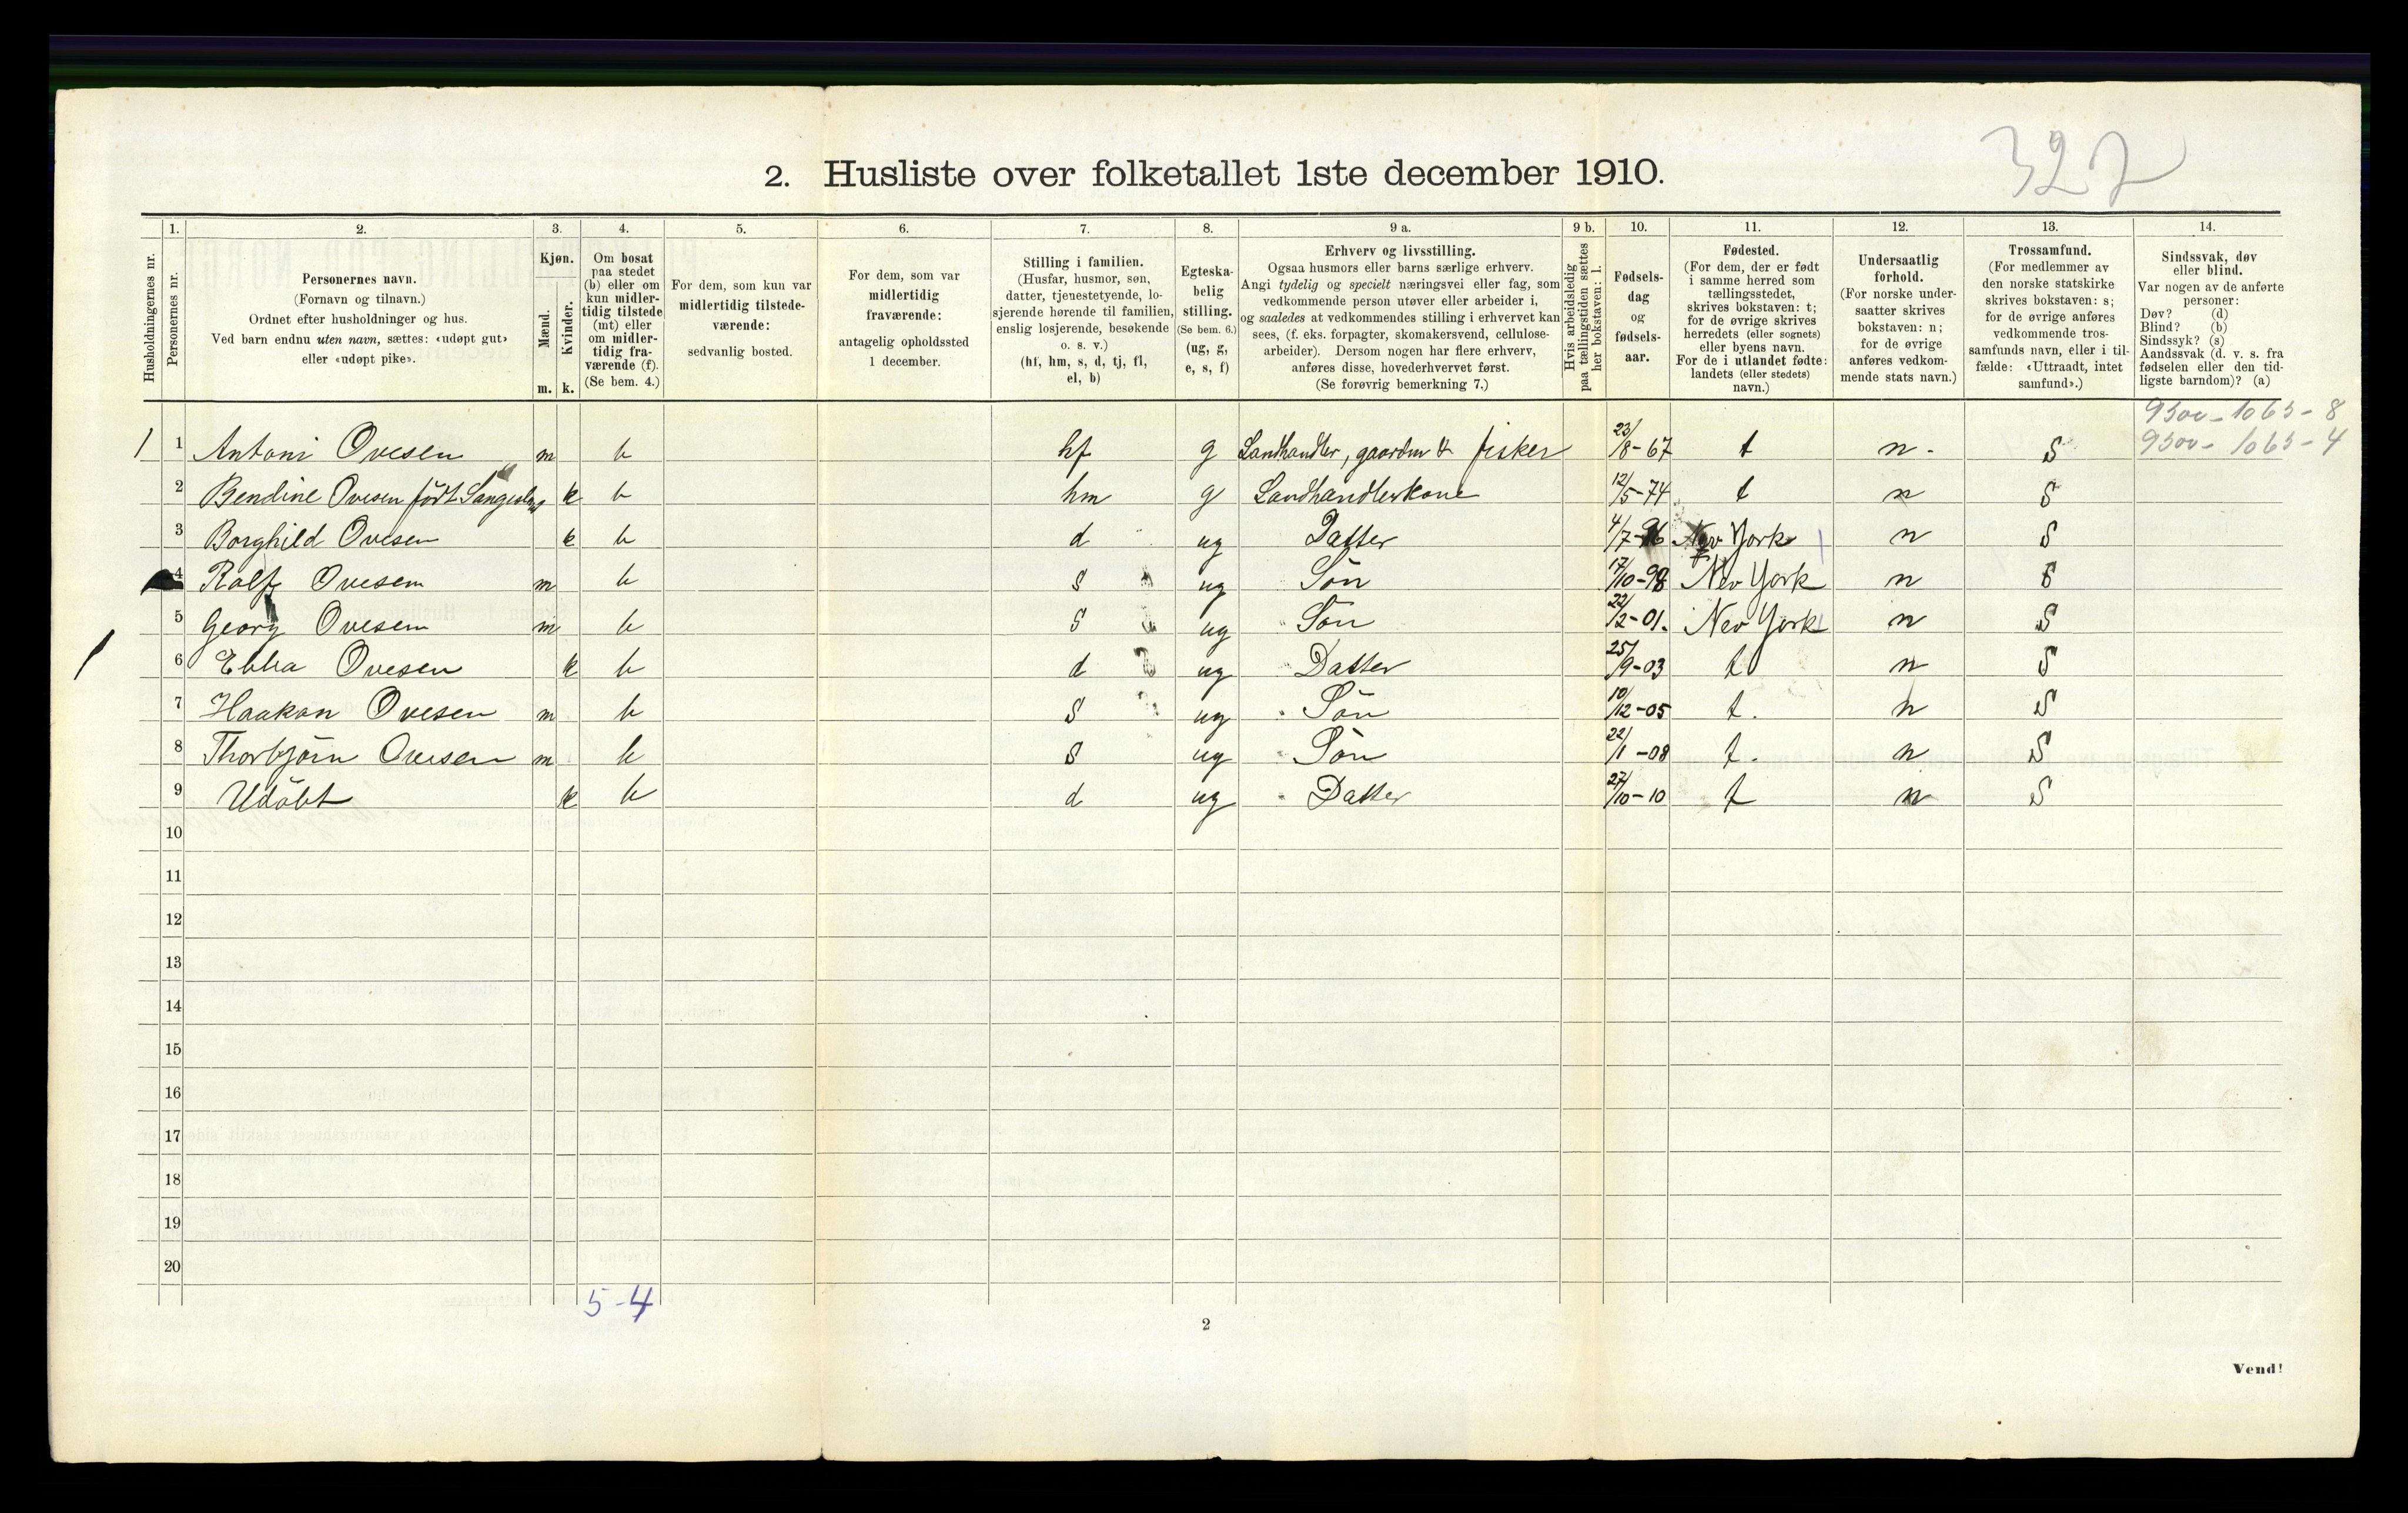 327
2. Husliste over folketallet 1ste december 1910.
Husholdningernes nr.
1.
Personernes nr.
2.
Personernes navn.
(Fornavn og tilnavn.)
Ordnet efter husholdninger og hus.
Ved barn endnu uten navn, sættes: «udøpt gut»
eller «udøpt pike».
3.
Kjøn.
Mænd.
Kvinder.
m. k.
4.
Om bosat
paa stedet
(b) eller om
kun midler-
tidig tilstede
(mt) eller
om midler-
tidig fra-
værende (f).
(Se bem. 4.)
5.
For dem, som kun var
midlertidig tilstede-
værende:
sedvanlig bosted.
6.
For dem, som var
midlertidig
fraværende:
antagelig opholdssted
1 december.
7.
Stilling i familien.
(Husfar, husmor, søn,
datter, tjenestetyende, lo-
sjerende hørende til familien,
enslig losjerende, besøkende
o. s. v.)
(hf, hm, s, d, tj, fl,
el, b)
8.
Egteska-
belig
stilling.
(Se bem. 6.)
(ug, g,
e, s, f)
9 a.
Erhverv og livsstilling.
Ogsaa husmors eller barns særlige erhverv.
Angi tydelig og specielt næringsvei eller fag, som
vedkommende person utøver eller arbeider i,
og saaledes at vedkommendes stilling i erhvervet kan
sees, (f. eks. forpagter, skomakersvend, cellulose-
arbeider). Dersom nogen har flere erhverv,
anføres disse, hovederhvervet først.
(Se forøvrig bemerkning 7.)
9 b.
Hvis arbeidsledig
paa tællingstiden sættes
her bokstaven: l.
10.
Fødsels-
dag
og
fødsels-
aar.
11.
Fødested.
(For dem, der er født
i samme herred som
tællingsstedet,
skrives bokstaven: t;
for de øvrige skrives
herredets (eller sognets)
eller byens navn.
For de i utlandet fødte:
landets (eller stedets)
navn.)
12.
Undersaatlig
forhold.
(For norske under-
saatter skrives
bokstaven: n;
for de øvrige
anføres vedkom-
mende stats navn.)
13.
Trossamfund.
(For medlemmer av
den norske statskirke
skrives bokstaven: s;
for de øvrige anføres
vedkommende tros-
samfunds navn, eller i til-
fælde: «Uttraadt, intet
samfund».)
14.
Sindssvak, døv
eller blind.
Var nogen av de anførte
personer:
Døv? (d)
Blind? (b)
Sindssyk? (s)
Aandssvak (d. v. s. fra
fødselen eller den tid-
ligste barndom)? (a)
9300-1065-8
9300-1065-4
1 1 Antoni Ovesen m b hf g Landhandler, gaardbr & fisker 23/8-67 t n S
2 Bendine Ovesen født k b hm g Landhandlerkone 12/5-74 t n S
3 Borghild Ovesen k b d ug Datter 4/7-96 New York n S
4 Rolf Ovesen m b S ug Søn 17/10-98 New York n S
5 Georg Ovesen m b S ug Søn 22/2-01. New York n S
6 Ebba Ovesen k b d ug Datter 25/9-03 t n S
7 Haakon Ovesen m b S ug Søn 10/12-05 t. n S
8 Thorbjørn Ovesen m b S ug Søn 22/1-08 t. n S
9 Udöbt k b d ug Datter 27/10-10 t n S
10
11
12
13
14
15
16
17
18
19
20
5-4
2
Vend!